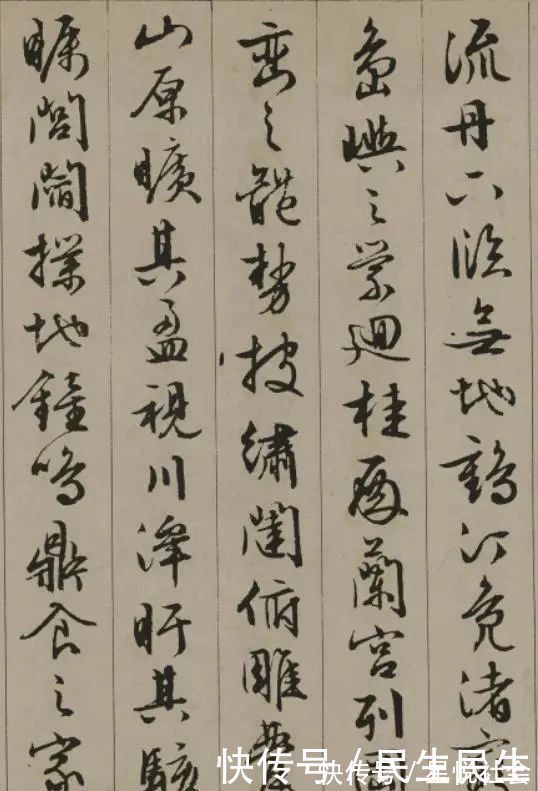 流丹下臨無地鶴汀鳧渚
島嶼之縈迴桂殿蘭宮列
巒之體勢披繡闥俯雕
山原曠其盈視川澤盱其駭
矚閭閻撲地鐘鳴鼎食之家
快传号 / 民生民生
快传号 /